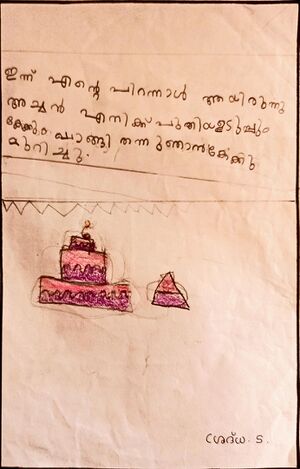 ഇന്ന് എന്റെ പിറന്നാൾ ആയിരുന്നു
അച്ഛൻ എനിക്ക് പുതിയഉടുപ്പും
കേക്കും വാങ്ങി തന്നുഞാൻകേക്കു
മുറിച്ചു.
ശ്രദ്ധ. S.